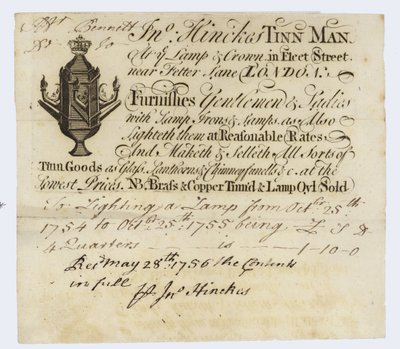 Mr Bennett
Dr to
Jno. Hinckes TINN MAN.
At ye Lamp & Crown in Fleet Street
near Fetter Lane LONDON.
Furnishes Gentlemen & Ladies
with Lamp Irons & Lamps as Also
Lighteth them at Reasonable Rates
And Maketh & Selleth All Sorts of
Tinn Goods as Glass Lanthorns & Chimney funels &c. at the
Lowest Prices. NB. Brass & Copper Tinn'd & Lamp Oyl Sold
To Lighting a Lamp from Octbr 25th
1754 to Octbr 25th: 1755 being £ S d
4 Quarters is 1-10-0
Recd May 28th: 1756 the Contents
in full
Jno Hinckes